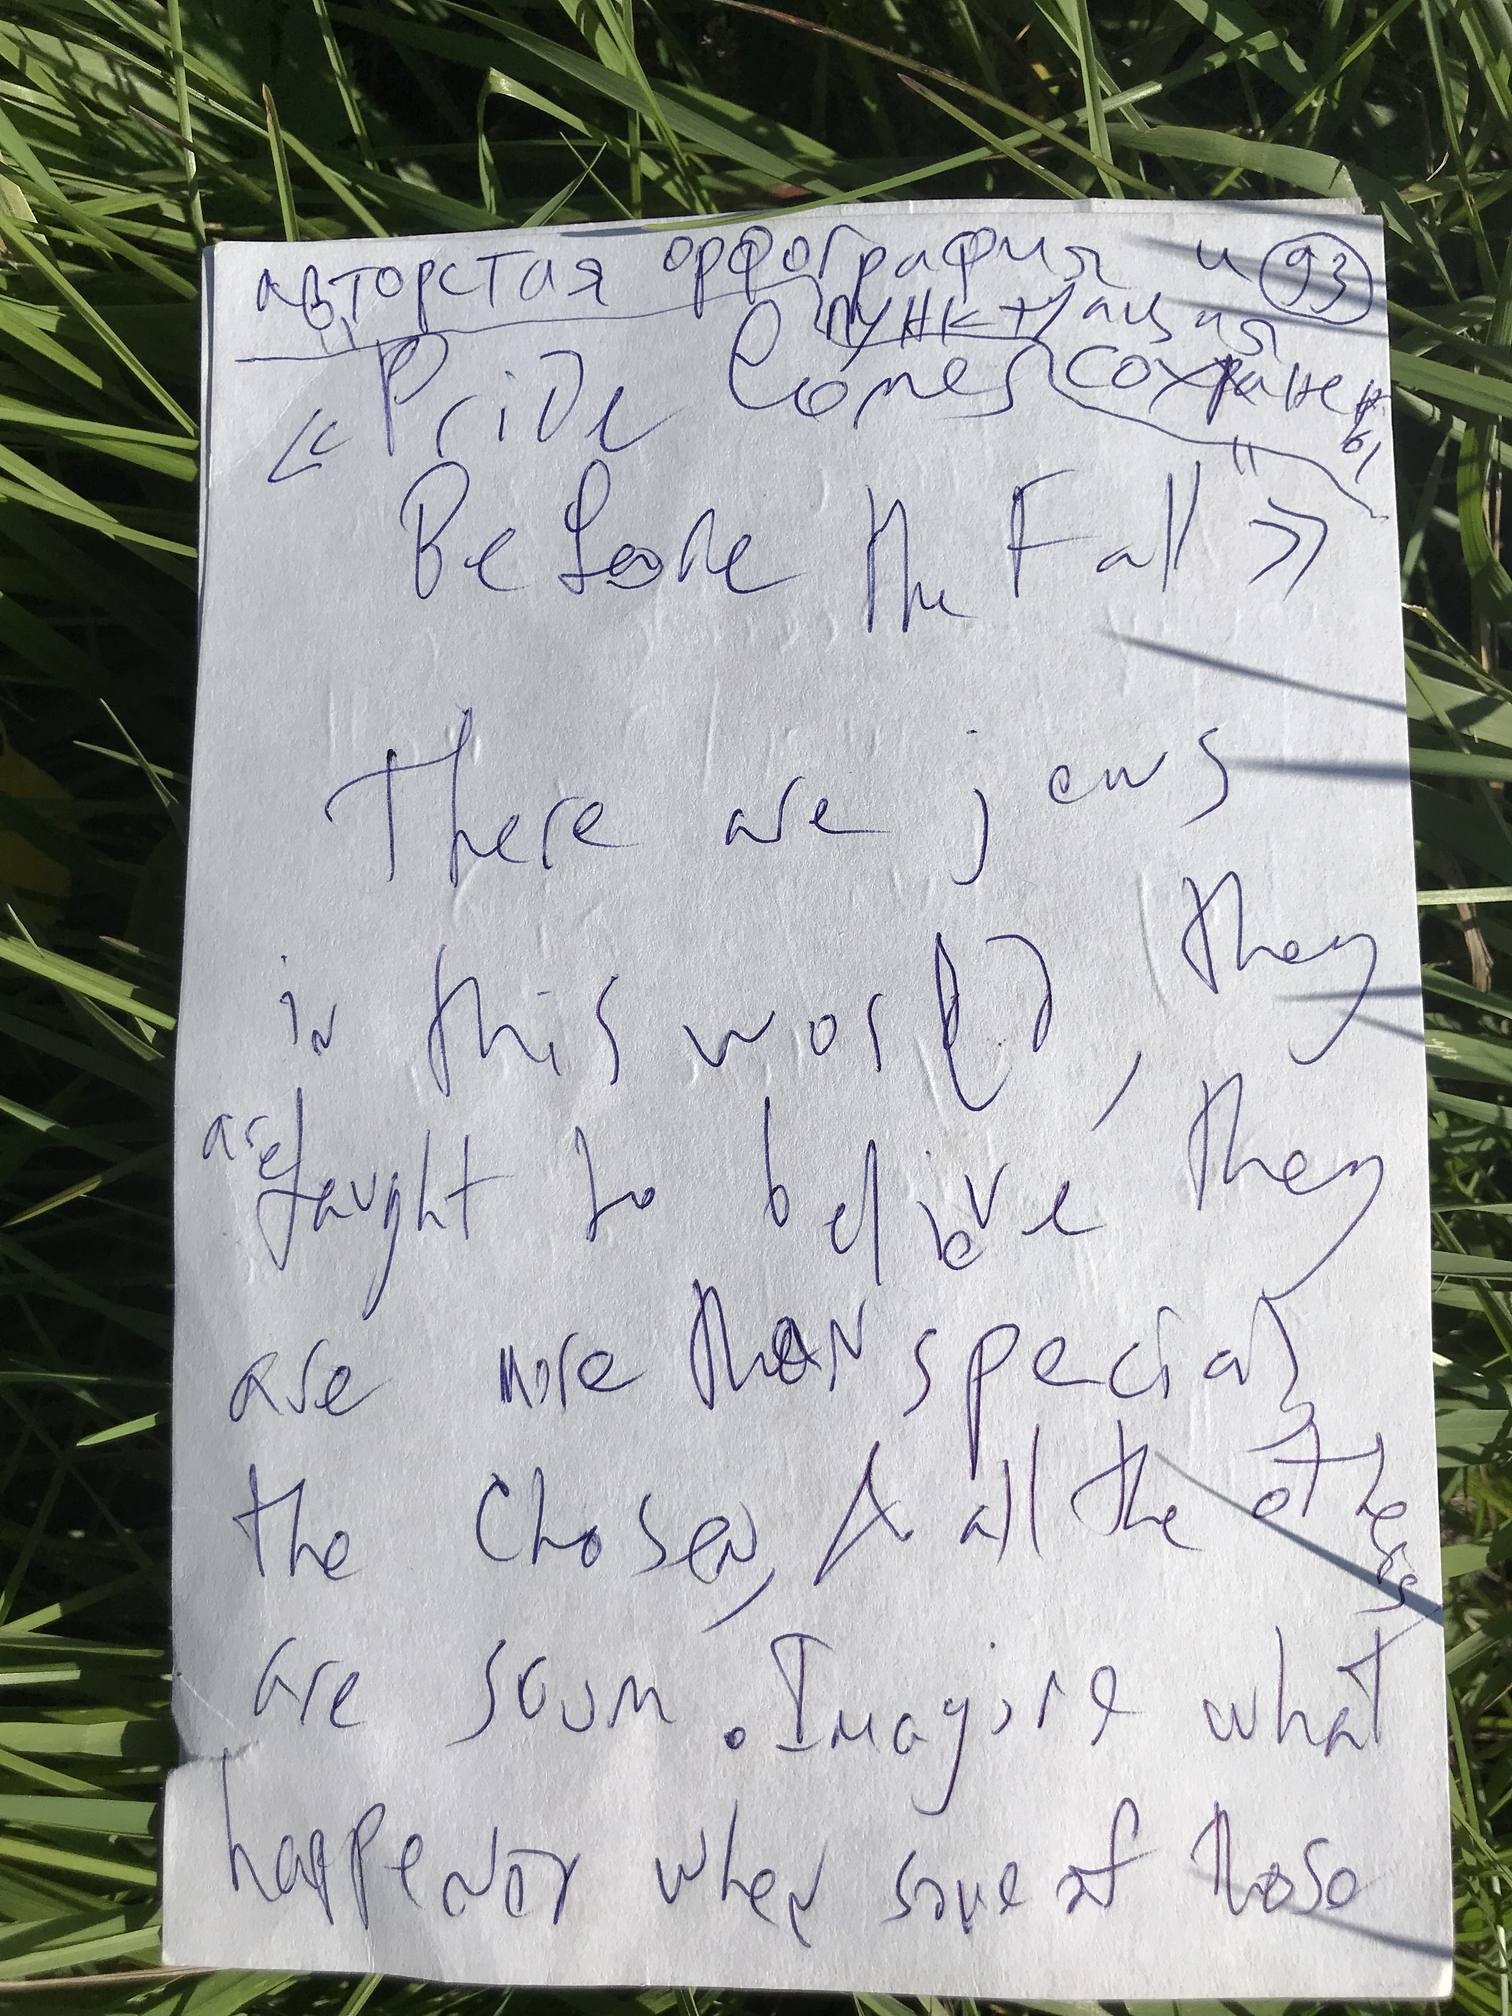 авторстая орфография и 93
пунктуация
сохранены
«Pride Comes
Before the Fall»
There are jews
in this world, they
are taught to believe, they
are more than special,
the Chosen, & all the others
are scum. Imagine what
happened when some of those